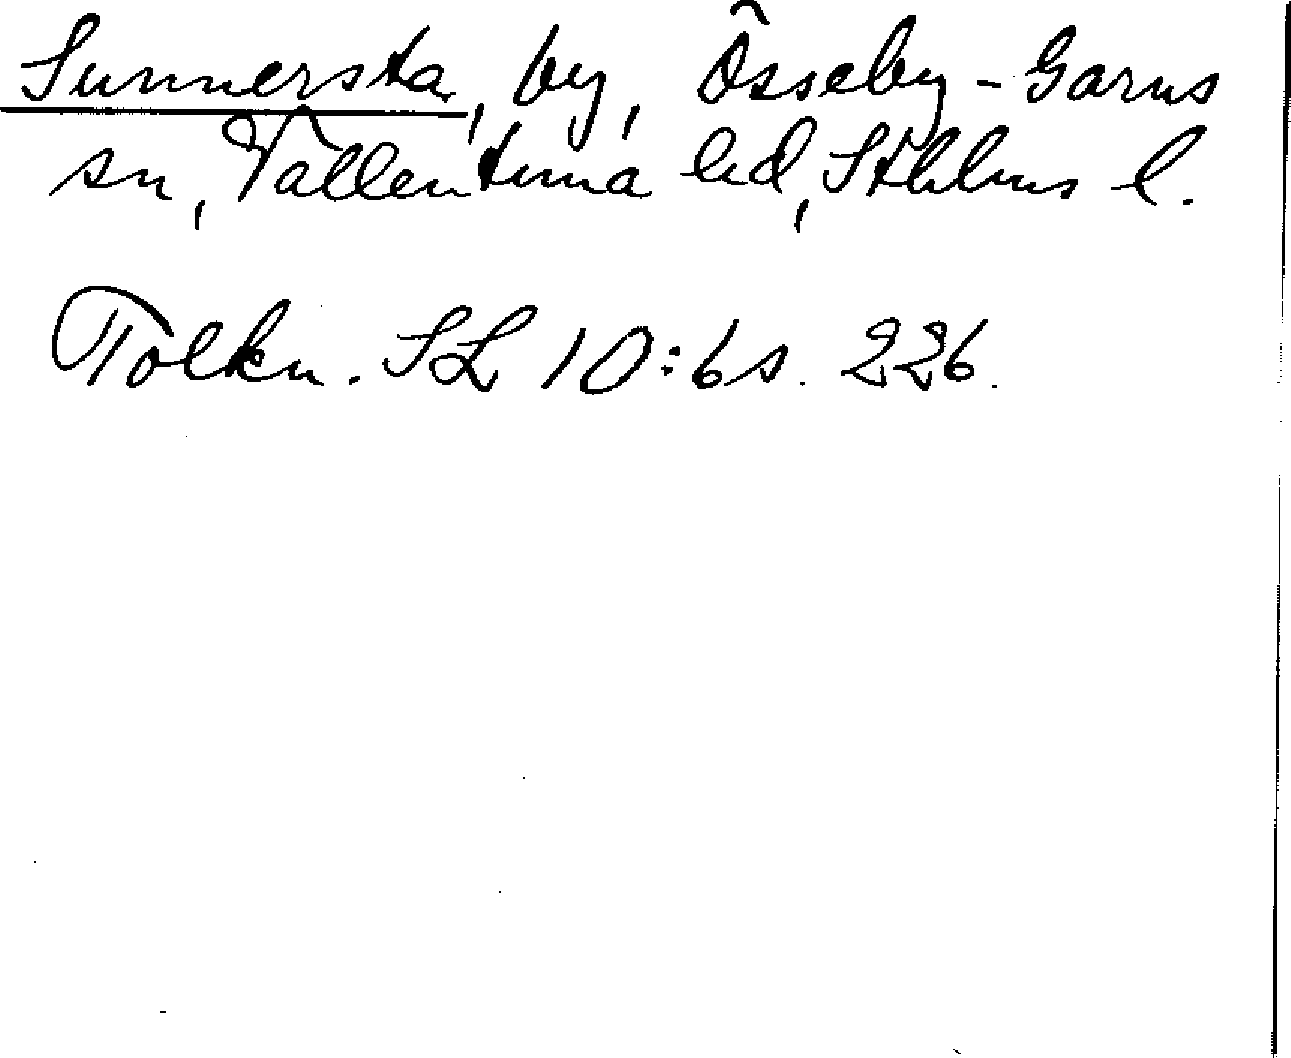 Sunnersta, by, Össeby-Garns
sn, Vallentuna hd, Sthlms l.
Tolkn. SL 10:6 s. 226.